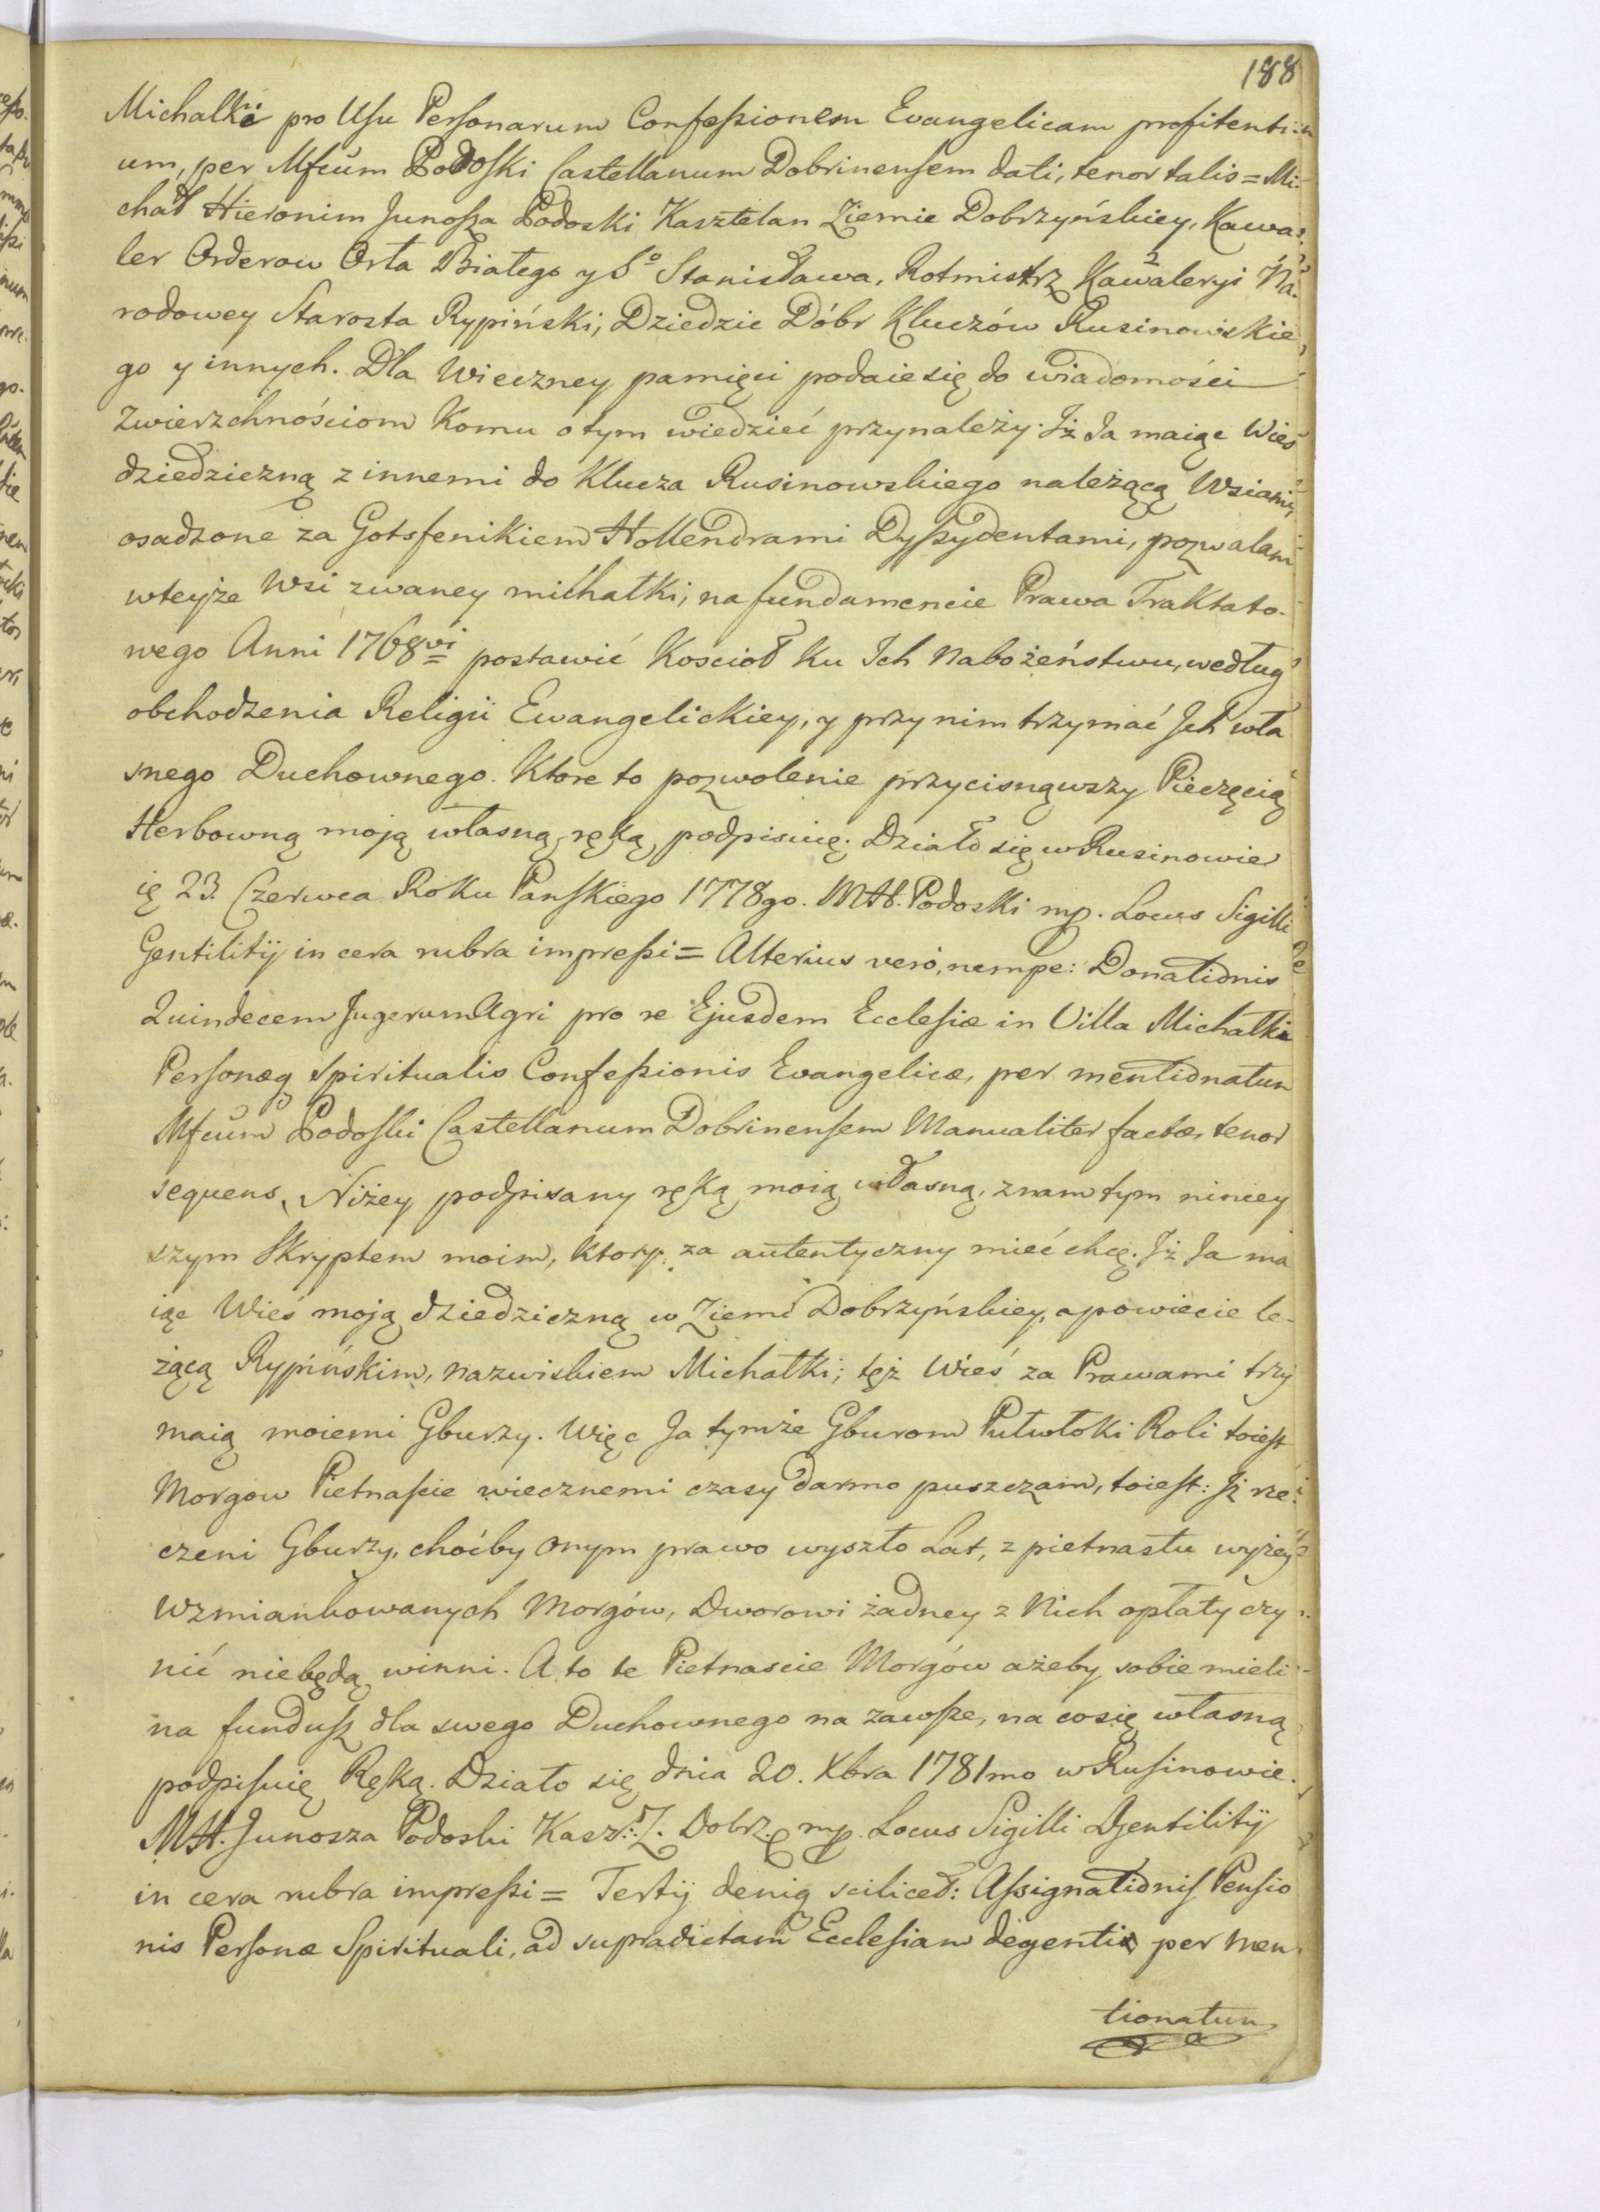 188
Michałki pro Usu Personarum Confessionem Evangelicam profitenti-
um, per Mfcum Podoski Castellanum Dobrinensem dati, tenor talis = Mi-
chał Hieronim Junosza Podoski Kasztelan Ziemie Dobrzyńskiey, Kawa-
ler Orderow Orła Białego y So Stanisława, Rotmistrz Kawaleryi Na-
rodowey Starosta Rypiński, Dziedzic Dóbr Kluczów Rusinowskie
go y innych. Dla Wieczney pamięci podaie się do wiadomości
Zwierzchnościom Komu o tym wiedzieć przynależy. Iż Ja maiąc Wieś
dziedziczną z innemi do Klucza Rusinowskiego należącą Wsiami,
osadzone za Gotsfenikiem Hollendrami Dyssydentami, pozwalam
wteyże Wsi zwaney michałki, na fundamencie Prawa Traktato-
wego Anni 1768vi postawić Kościoł ku Ich Nabożeństwu, według
obchodzenia Religii Ewangelickiey, y przy nim trzymać Ich wła
snego Duchownego. Ktore to pozwolenie przycisnąwszy Pieczęcią
Herbowną moją własną ręką podpisuię. Działo się w Rusinowie
ię 23. Czerwca Roku Panskiego 1778go. MH. Podoski mp. Locus Sigilli
Gentilitij in cera rubra impressi = Alterius verò, nempe: Donationis
Quindecem Jugerum Agri pro re Ejusdem Ecclesiæ in Villa Michałki
Personæq Spiritualis Confessionis Evangelicæ, per mentionatum
Mfcum Podoski Castellanum Dobrinensem Manualiter factæ, tenor
sequens, Niżey podpisany ręką moią własną, znam tym niniey
szym Skryptem moim, ktory za autentyczny mieć chcę. Iż Ja ma
iąc Wieś moją dziedziczną w Ziemi Dobrzyńskiey, a powiecie le-
żącą Rypińskim, nazwiskiem Michałki; tęż Wieś za Prawami trzy
maią moiemi Gburzy. Więc Ja tymże Gburom Pułwłoki Roli toiest
Morgow Pietnaście wiecznemi czasy darmo puszczam, toiest: Iż rze-
czeni Gburzy, choćby onym prawo wyszło Lat, z pietnastu wyżey
wzmiankowanych Morgów, Dworowi żadney z Nich opłaty czy-
nić niebędą winni. A to te Pietnascie Morgów ażeby sobie mieli
na fundusz dla swego Duchownego na zawsze, na co się własną
podpisuię Ręką. Działo się dnia 20. Xbra 1781mo w Rusinowie.
MH. Junosza Podoski Kasz: Z. Dobrz. mp. Locus Sigilli Gentilitij
in cera rubra impressi = Tertij deniq scilicet: Assignationis Pensio
nis Personæ Spirituali, ad supradictam Ecclesiam degenti per Men-
tionatum